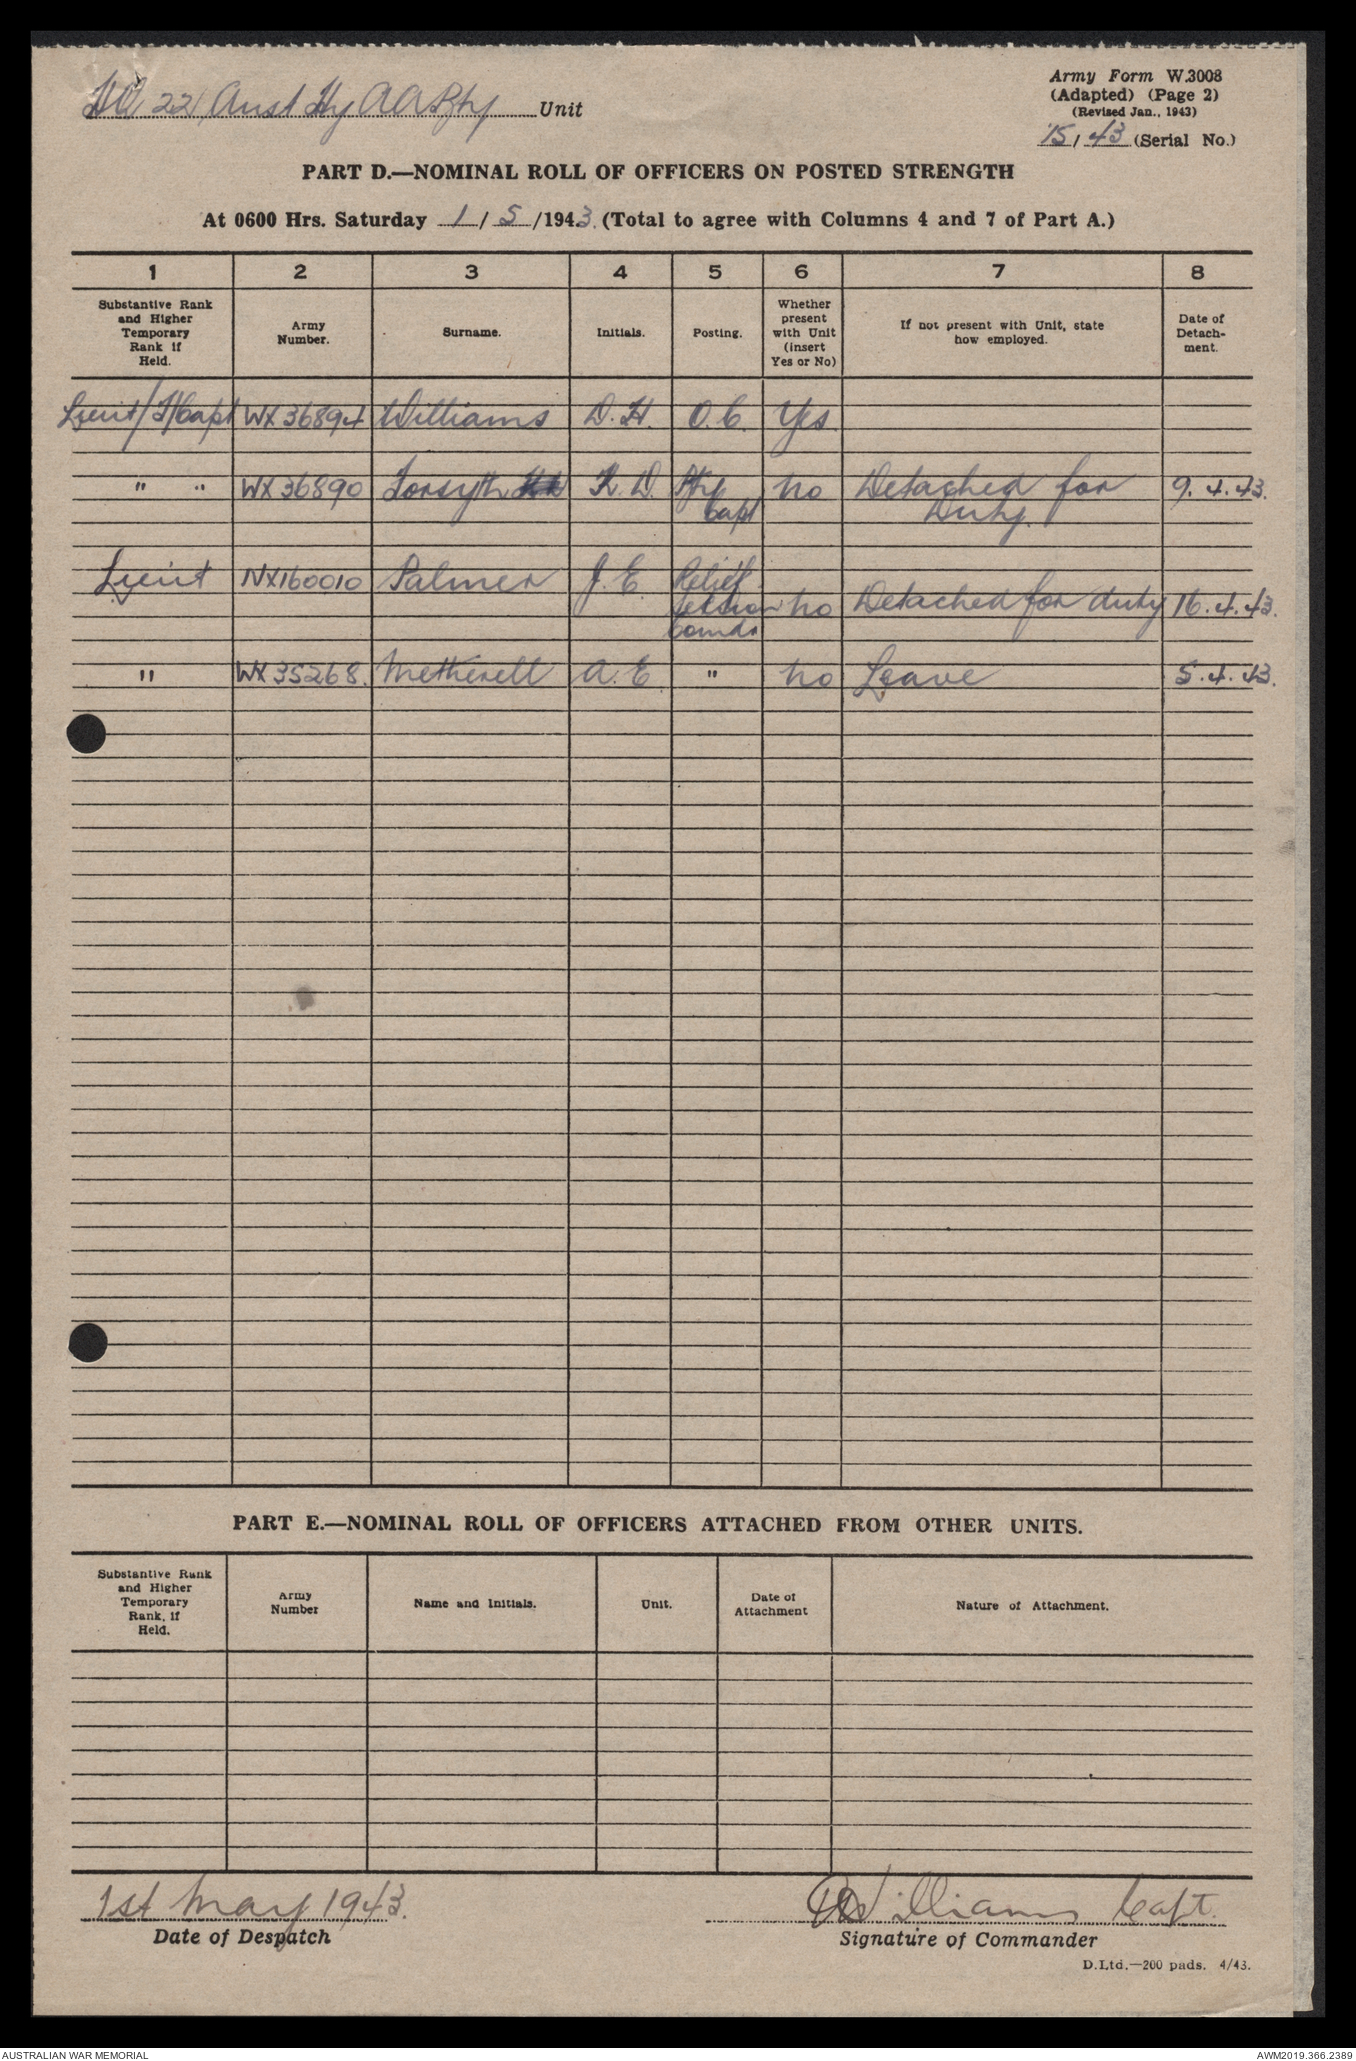 HQ 22 Aust Hy AA Bty Unit
Army Form W.3008
(Adapted) (Page 2)
(Revised Jan., 1943)
15/43 (Serial No.)
PART D.—NOMINAL ROLL OF OFFICERS ON POSTED STRENGTH
At 0600 Hrs. Saturday 1/5/1943. (Total to agree with Columns 4 and 7 of Part A.)
1 2 3 4 5 6 7 8
Substantive Rank and Higher Temporary Rank if Held. Army Number. Surname. Initials. Posting. Whether present with Unit (insert Yes or No) If not present with Unit, state how employed. Date of Detachment.
Lieut/T/Capt WX36894 Williams D.H. O.C. Yes
" " WX36890 Forsyth K.D. Bty Capt No Detached for Duty. 9.4.43.
Lieut NX160010 Palmer J.E. Relief Section Comds No Detached for duty 16.4.43.
" WX35268. Metherell A.E. " No Leave 5.4.43.
PART E.—NOMINAL ROLL OF OFFICERS ATTACHED FROM OTHER UNITS.
Substantive Rank and Higher Temporary Rank, if Held. Army Number Name and Initials. Unit. Date of Attachment Nature of Attachment.
1st May 1943.
Date of Despatch
Williams Capt.
Signature of Commander
D.Ltd.—200 pads. 4/43.
AUSTRALIAN WAR MEMORIAL
AWM2019.366.2389